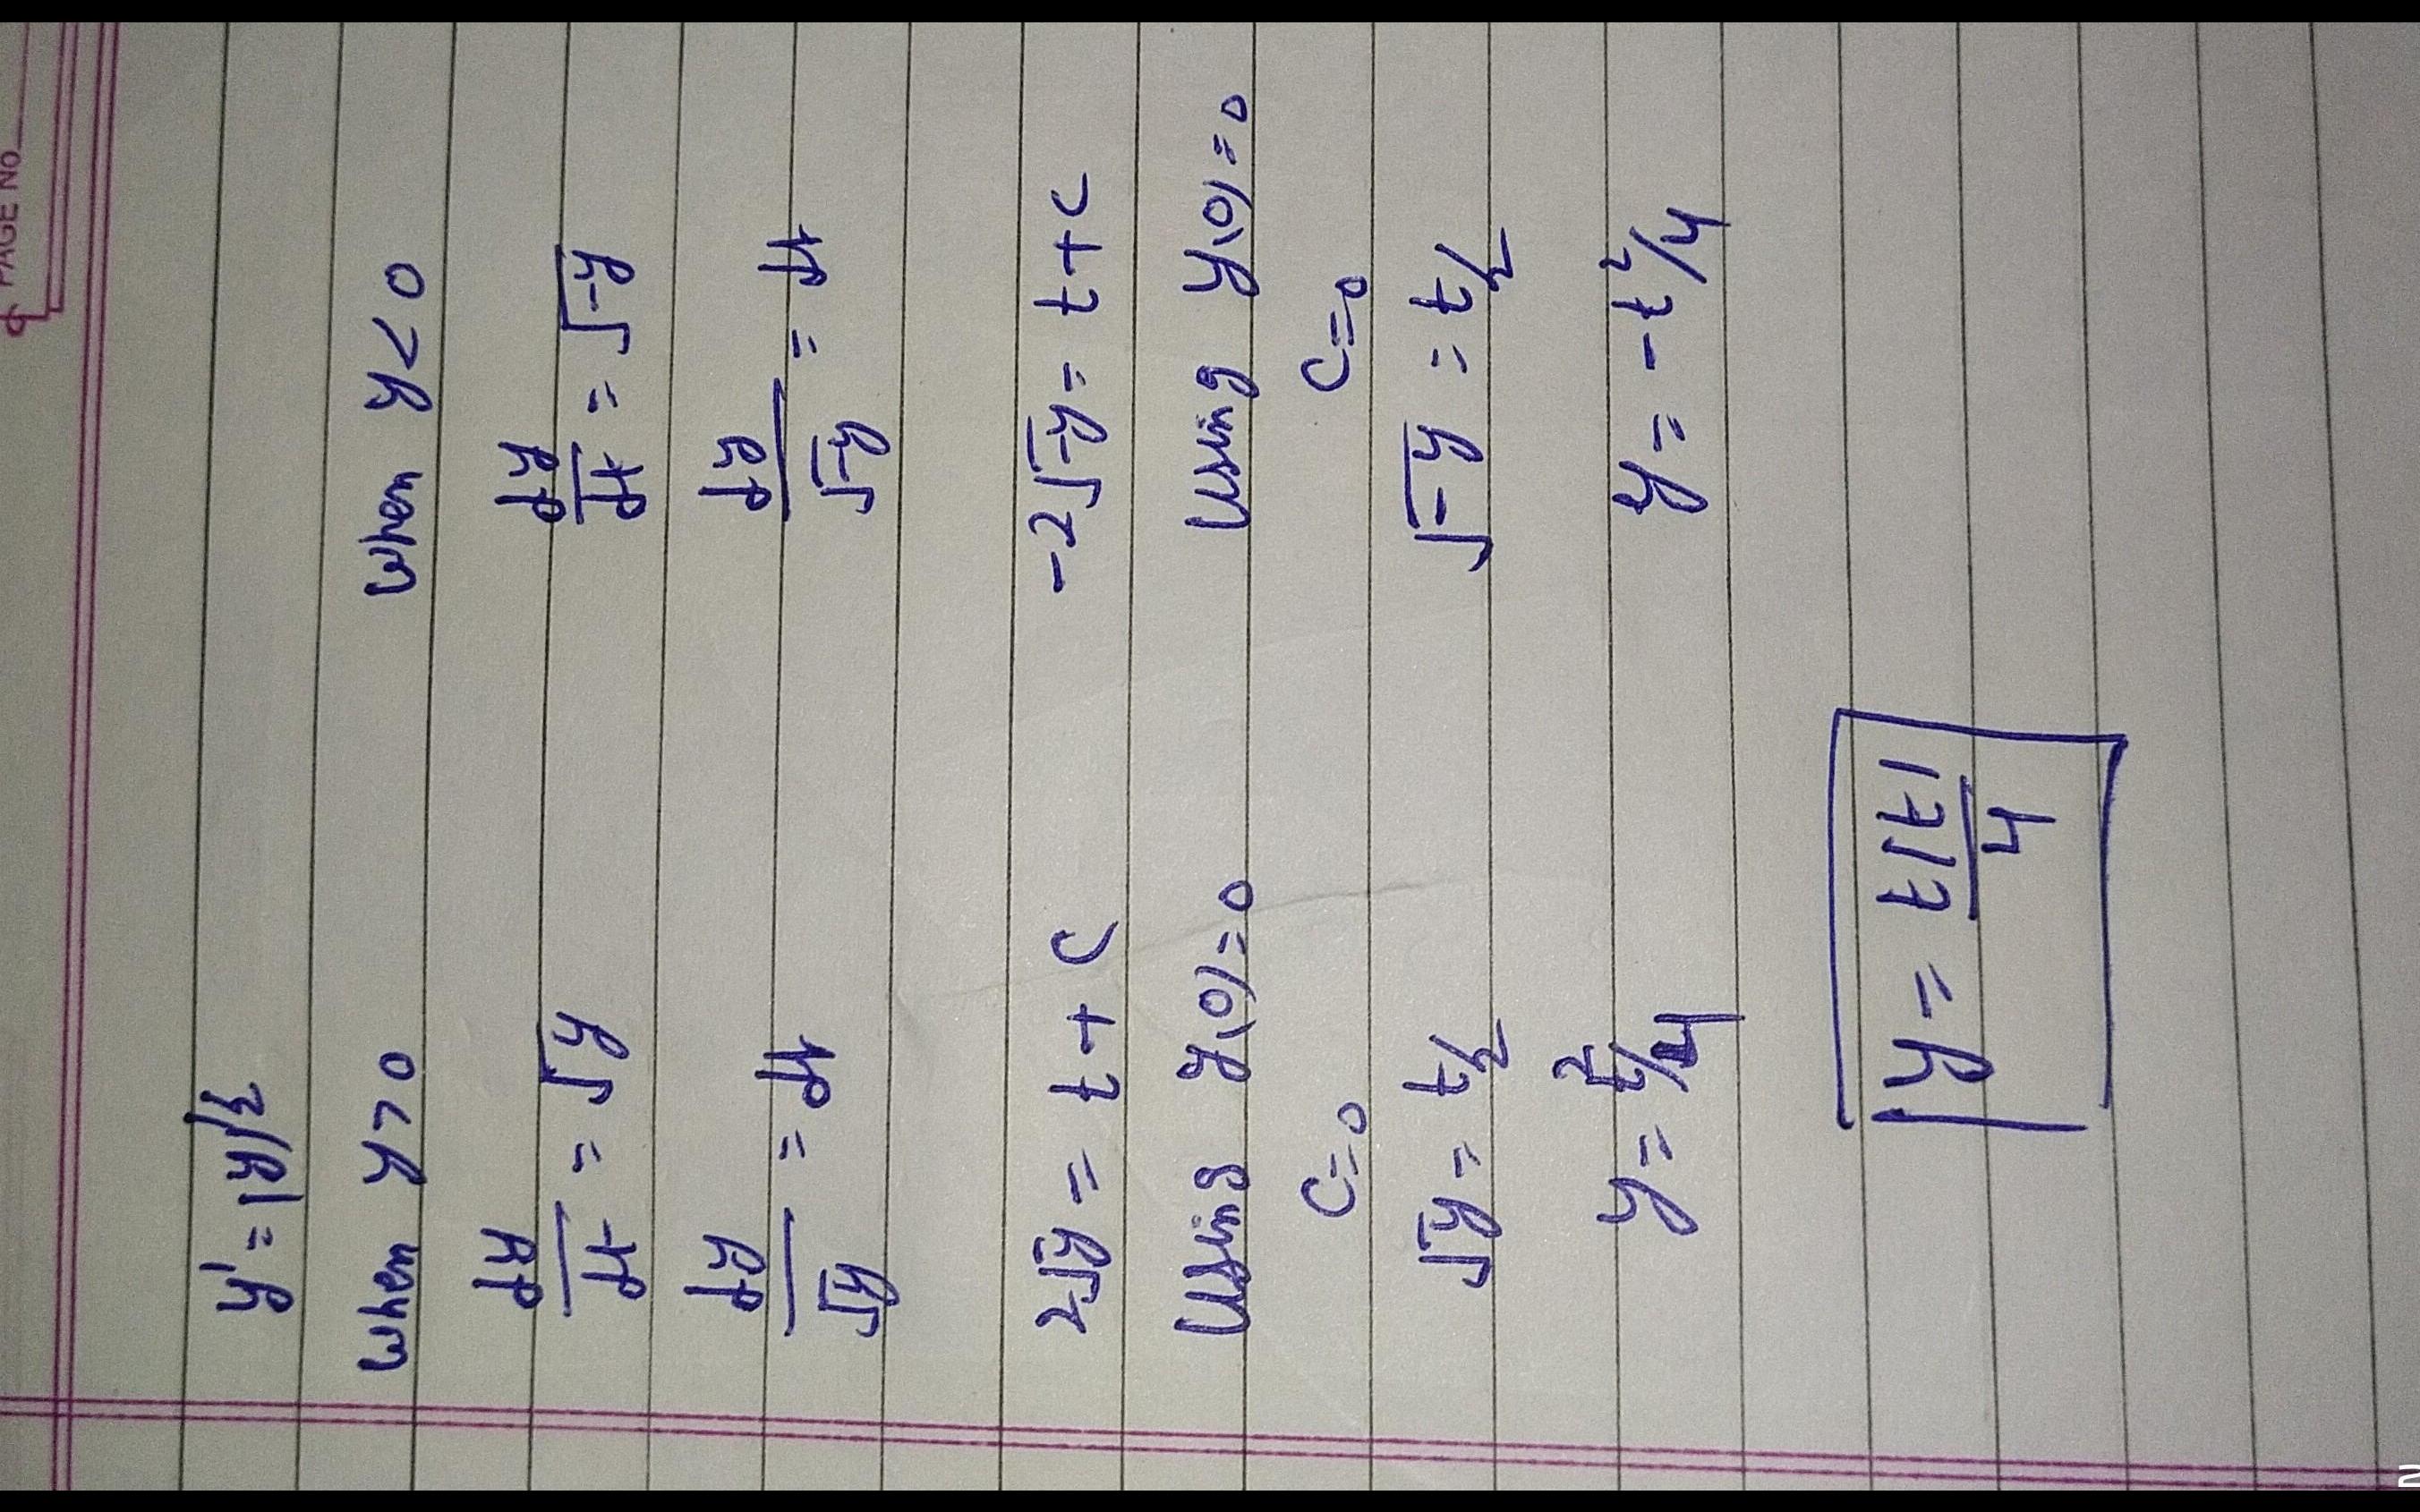 PAGE No.
y' = |y|^{1/2}
When y>0 When y<0
dy/dt = √y dy/dt = √-y
dy/√y = dt dy/√-y = dt
2√y = t + c -2√-y = t + c
Using y(0)=0 Using y(0)=0
c=0 c=0
√y = t/2 √-y = t/2
y = t²/4 y = -t²/4
y = t|t|/4
2